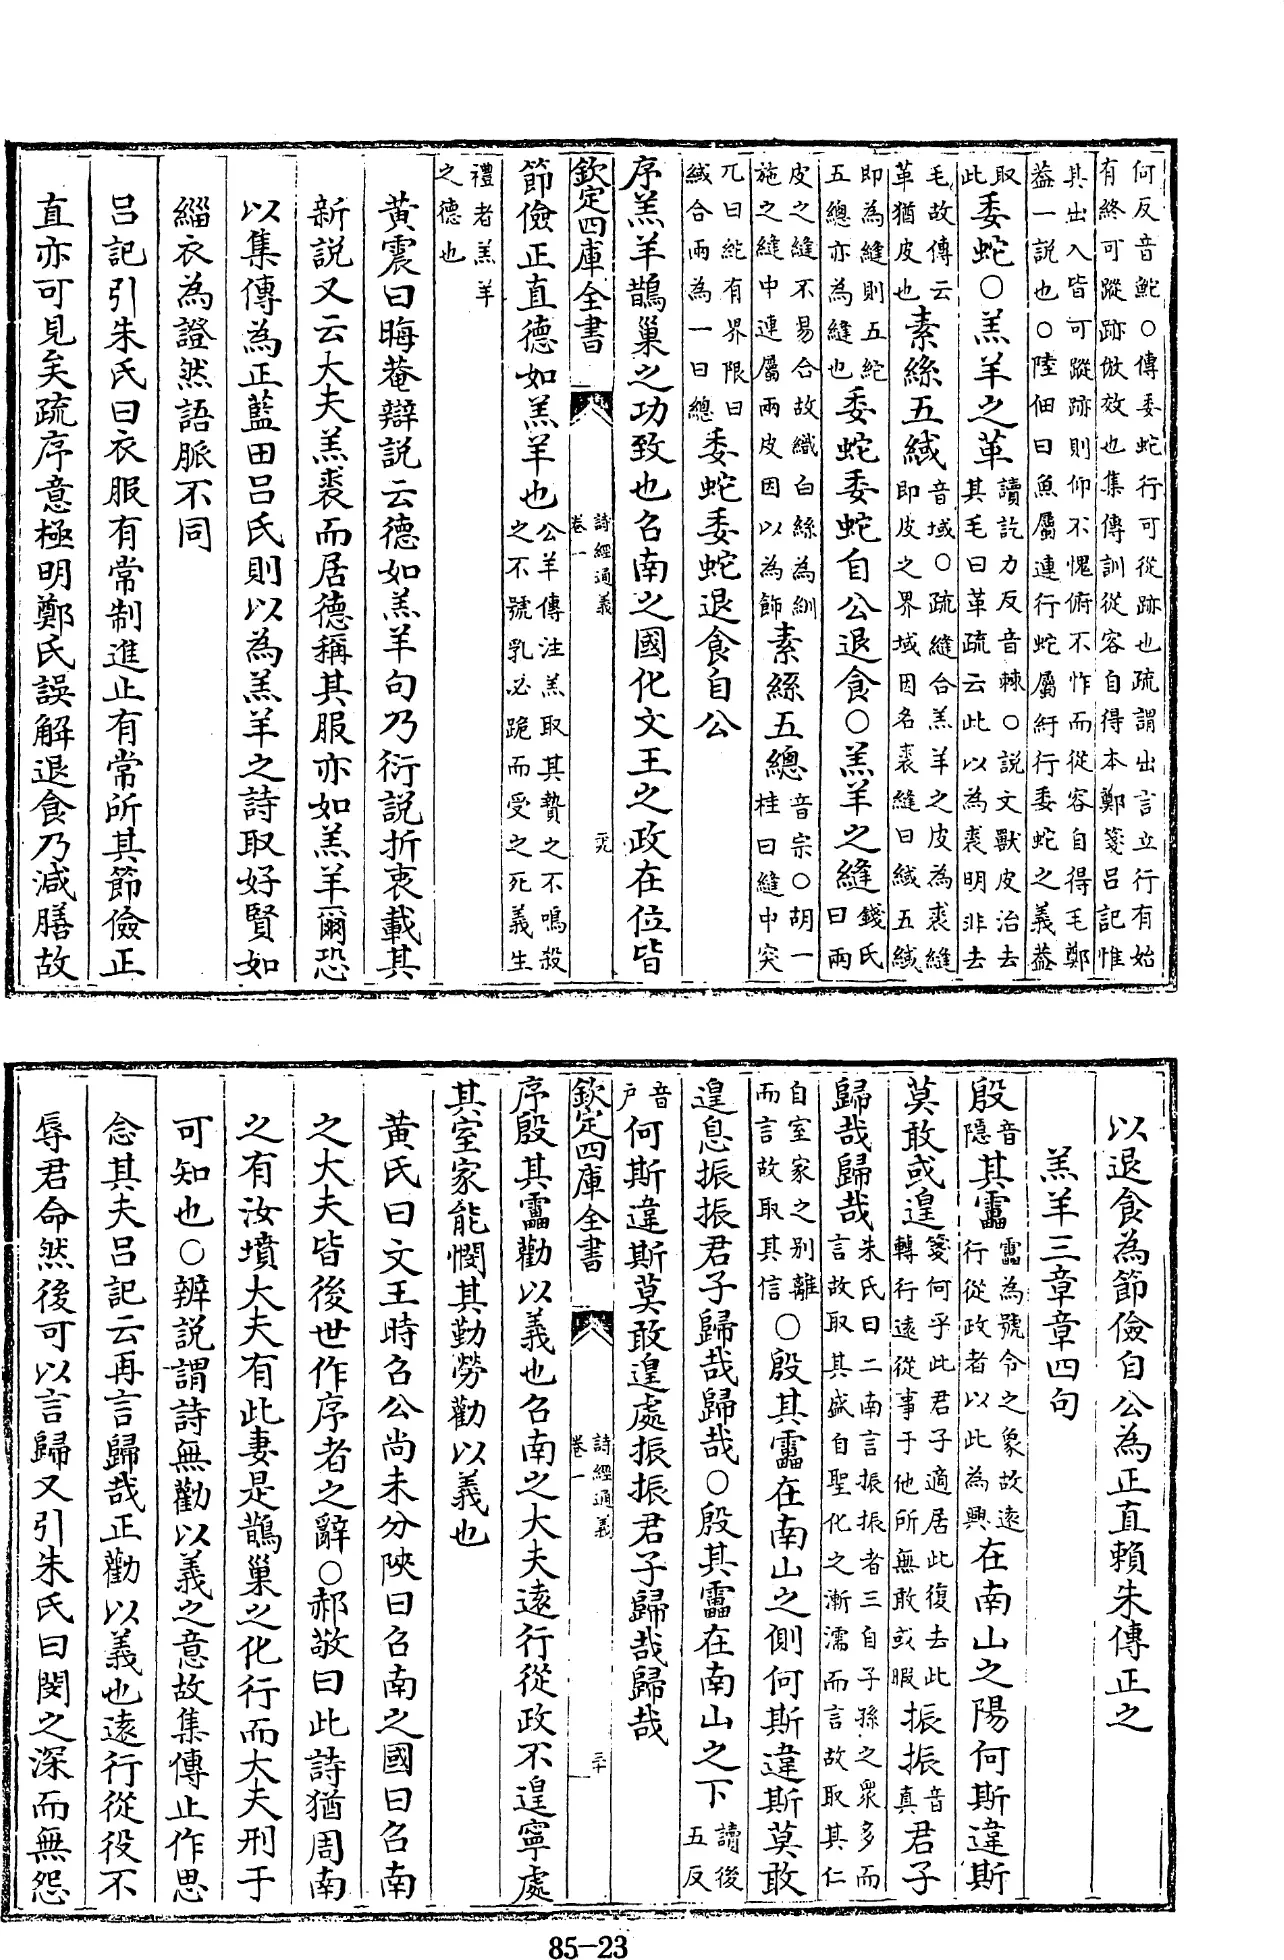 何反音鮀○傳委蛇行可從跡也疏謂出言立行有始有終可蹤跡倣效也集傳訓從容自得本鄭箋呂記惟
其出入皆可蹤跡則仰不愧俯不怍而從容自得毛鄭葢一説也○陸佃曰魚屬連行蛇屬紆行委蛇之義葢
取此委蛇○羔羊之革讀訖力反音棘○説文獸皮治去其毛曰革疏云此以為裘明非去
毛故傳云革猶皮也素絲五緎音域○疏縫合羔羊之皮為裘縫即皮之界域因名裘縫曰緎五緎
即為縫則五紽五總亦為縫也委蛇委蛇自公退食○羔羊之縫錢氏曰兩
皮之縫不易合故織白絲為紃施之縫中連屬兩皮因以為飾素絲五總音宗○胡一桂曰縫中突
兀曰紽有界限曰緎合兩為一曰總委蛇委蛇退食自公
序羔羊鵲巢之功致也召南之國化文王之政在位皆
欽定四庫全書 詩經通義卷一 二九
節儉正直德如羔羊也公羊傳注羔取其贄之不鳴殺之不號乳必跪而受之死義生
禮者羔羊之德也
黃震曰晦菴辯説云德如羔羊句乃衍説折衷載其
新説又云大夫羔裘而居德稱其服亦如羔羊爾恐
以集傳為正藍田呂氏則以為羔羊之詩取好賢如
緇衣為證然語脈不同
呂記引朱氏曰衣服有常制進止有常所其節儉正
直亦可見矣疏序意極明鄭氏誤解退食乃減膳故
以退食為節儉自公為正直賴朱傳正之
羔羊三章章四句
殷音隱其靁靁為號令之象故遠行從政者以此為興在南山之陽何斯違斯
莫敢或遑箋何乎此君子適居此復去此轉行遠從事于他所無敢或暇振振音真君子
歸哉歸哉朱氏曰二南言振振者三自子孫之衆多而言故取其盛自聖化之漸濡而言故取其仁
自室家之别離而言故取其信○殷其靁在南山之側何斯違斯莫敢
遑息振振君子歸哉歸哉○殷其靁在南山之下讀後五反
音戸何斯違斯莫敢遑處振振君子歸哉歸哉
欽定四庫全書 詩經通義卷一 三十
序殷其靁勸以義也召南之大夫遠行從政不遑寧處
其室家能憫其勤勞勸以義也
黃氏曰文王時召公尚未分陝曰召南之國曰召南
之大夫皆後世作序者之辭○郝敬曰此詩猶周南
之有汝墳大夫有此妻是鵲巢之化行而大夫刑于
可知也○辨説謂詩無勸以義之意故集傳止作思
念其夫呂記云再言歸哉正勸以義也遠行從役不
辱君命然後可以言歸又引朱氏曰閔之深而無怨
85-23